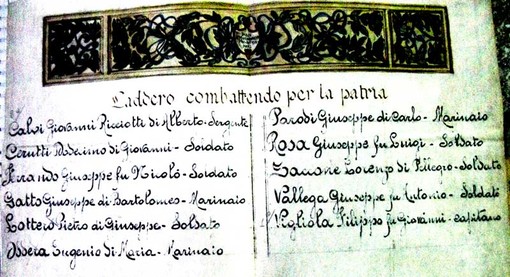 Caddero combattendo per la patria
Calvi Giovanni Ricciotti di Alberto - Sergente
Cerutti Modesimo di Giovanni - Soldato
Ferrando Giuseppe fu Nicolò - Soldato
Gatto Giuseppe di Bartolomeo - Marinaio
Lottero Pietro di Giuseppe - Soldato
Ossera Eugenio di Maria - Marinaio
Parodi Giuseppe di Carlo - Marinaio
Rosa Giuseppe fu Luigi - Soldato
Zaccone Lorenzo di Pellegro - Soldato
Vallega Giuseppe fu Antonio - Soldato
Vigliola Filippo fu Giovanni - capitano